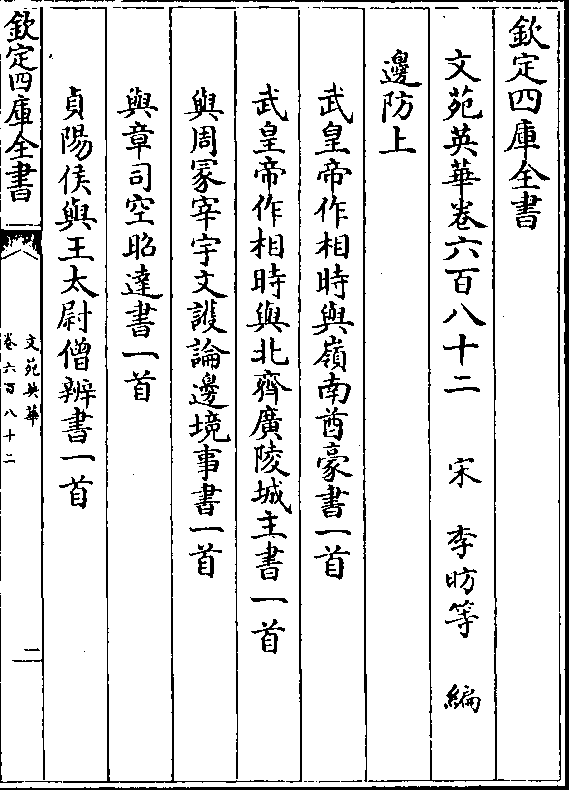 欽定四庫全書
文苑英華卷六百八十二 宋 李昉等 編
邊防上
武皇帝作相時與嶺南酋豪書一首
武皇帝作相時與北齊廣陵城主書一首
與周冢宰宇文護論邊境事書一首
與章司空昭達書一首
貞陽侯與王太尉僧辨書一首
欽定四庫全書
文苑英華
卷六百八十二
二